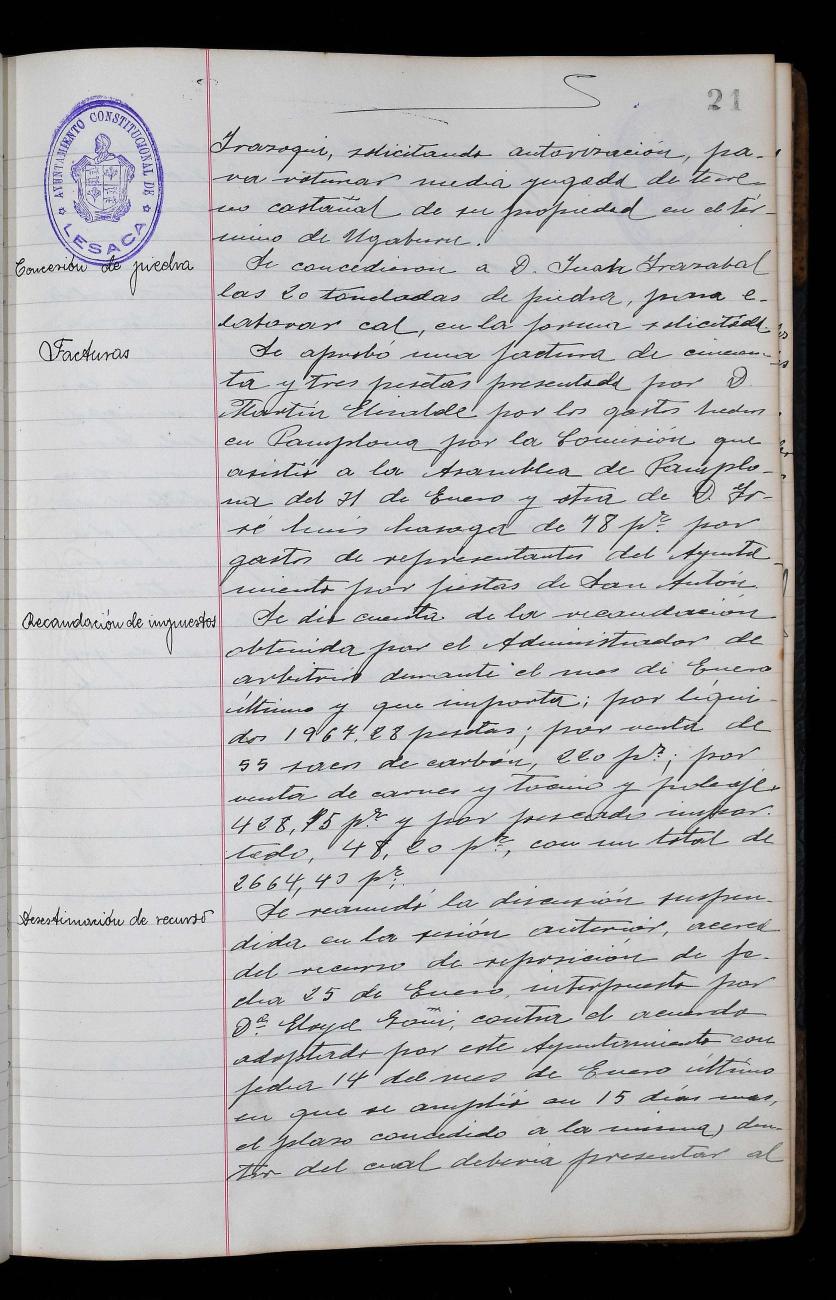 21
AYUNTAMIENTO CONSTITUCIONAL DE
LESACA
Irazoqui, solicitando autorización, pa-
ra roturar media yugada de terre-
no castañal de su propiedad en el tér-
mino de Ugaburu.
Concesión de piedra
Se concedieron a D. Juan Irazabal
las 20 toneladas de piedra, para e-
laborar cal, en la forma solicitada.
Facturas
Se aprobó una factura de cincuen-
ta y tres pesetas presentada por D.
Martín Elizalde por los gastos hechos
en Pamplona por la Comisión que
asistió a la Asamblea de Pamplo-
na del 31 de Enero y otra de D. Jo-
sé Luis Lasaga de 78 pts. por
gastos de representantes del Ayunta-
miento por fiestas de San Antón
Recaudación de impuestos
Se dio cuenta de la recaudación
obtenida por el Administrador de
arbitrios durante el mes de Enero
último y que importa; por líqui-
dos 1967,28 pesetas; por venta de
55 sacos de carbón, 220 pts; por
venta de carnes y tocino y
428,75 pts y por pescado impor-
tado, 48,20 pts, con un total de
2664,40 pts.
Desestimación de recurso
Se reanudó la discusión suspen-
dida en la sesión anterior, acerca
del recurso de reposición de fe-
cha 25 de Enero, interpuesto por
Dª Eloyd Goñi, contra el acuerdo
adoptado por este Ayuntamiento con
fecha 14 del mes de Enero último
en que se amplió en 15 días mas,
el plazo concedido a la misma, den-
tro del cual debería presentar al